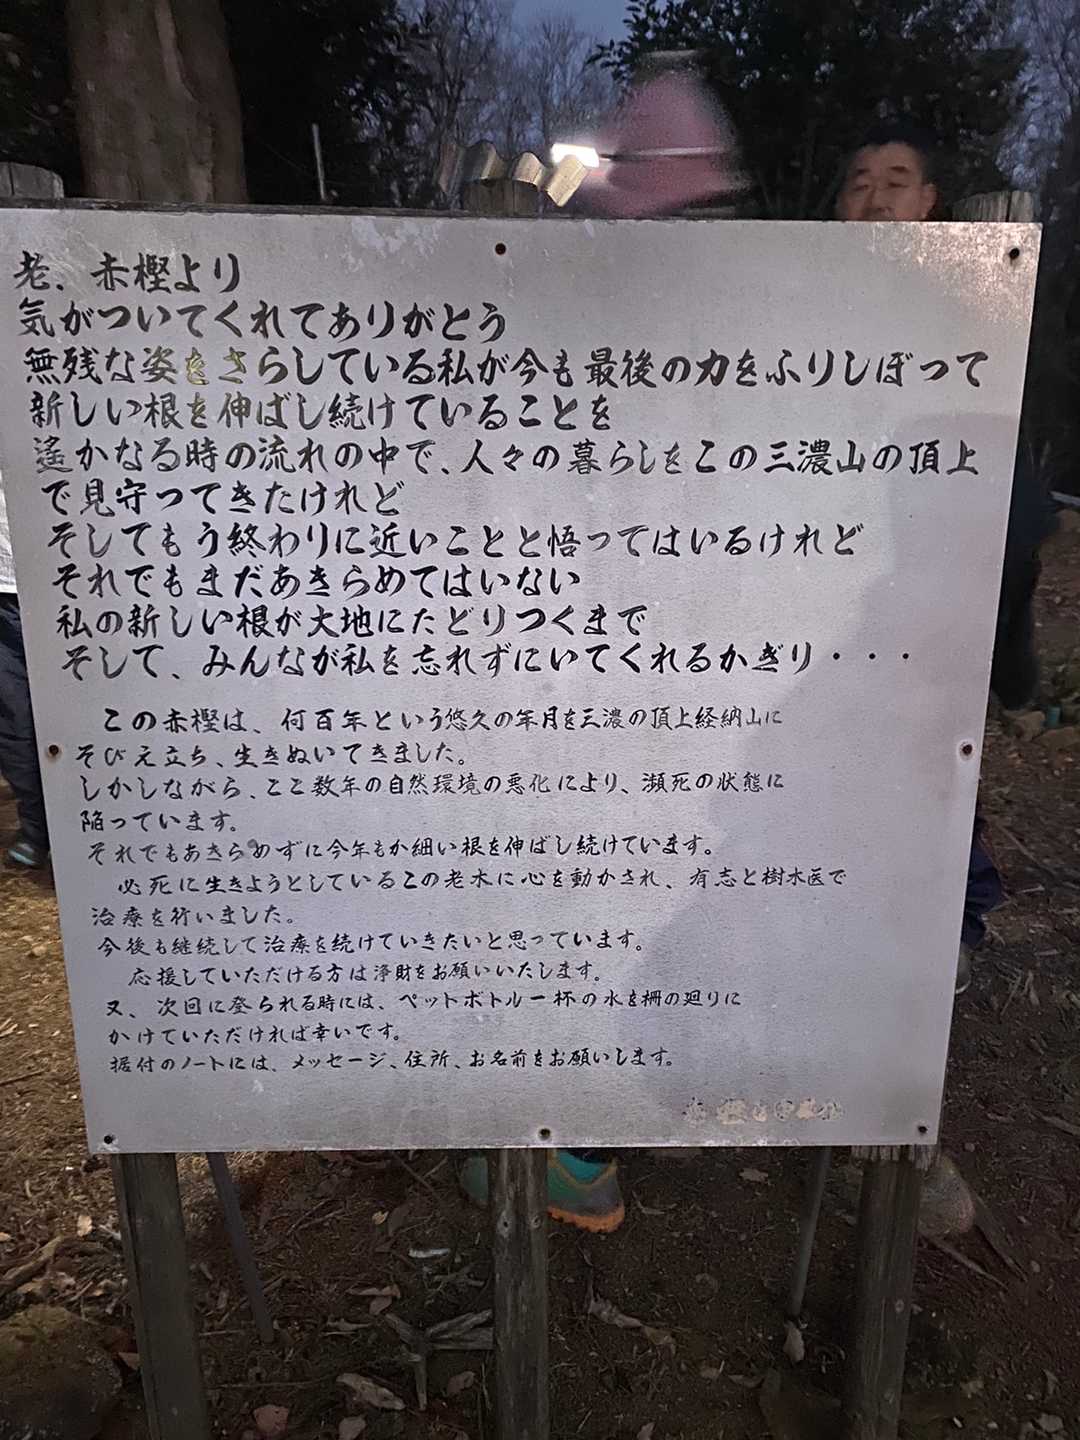 老、赤樫より
気がついてくれてありがとう
無残な姿をさらしている私が今も最後の力をふりしぼって
新しい根を伸ばし続けていることを
遙かなる時の流れの中で、人々の暮らしをこの三濃山の頂上
で見守ってきたけれど
そしてもう終わりに近いことと悟ってはいるけれど
それでもまだあきらめてはいない
私の新しい根が大地にたどりつくまで
そして、みんなが私を忘れずにいてくれるかぎり・・・
この赤樫は、何百年という悠久の年月を三濃の頂上経納山に
そびえ立ち、生きぬいてきました。
しかしながら、ここ数年の自然環境の悪化により、瀕死の状態に
陥っています。
それでもあきらめずに今年もか細い根を伸ばし続けています。
必死に生きようとしているこの老木に心を動かされ、有志と樹木医で
治療を行いました。
今後も継続して治療を続けていきたいと思っています。
応援していただける方は浄財をお願いいたします。
又、次回に登られる時には、ペットボトル一杯の水を柵の廻りに
かけていただければ幸いです。
据付のノートには、メッセージ、住所、お名前をお願いします。